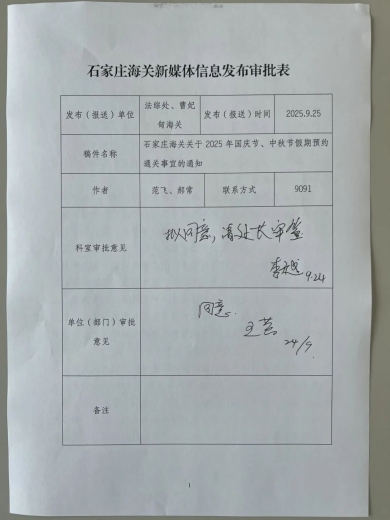 石家庄海关新媒体信息发布审批表
发布（报送）单位
法综处、曹妃
甸海关
发布（报送）时间
2025.9.25
稿件名称
石家庄海关关于 2025 年国庆节、中秋节假期预约
通关事宜的通知
作者
范飞、郝常
联系方式
9091
科室审批意见
拟同意，请处长审签
9.24
单位（部门）审批
意见
同意.
24/9
备注
1